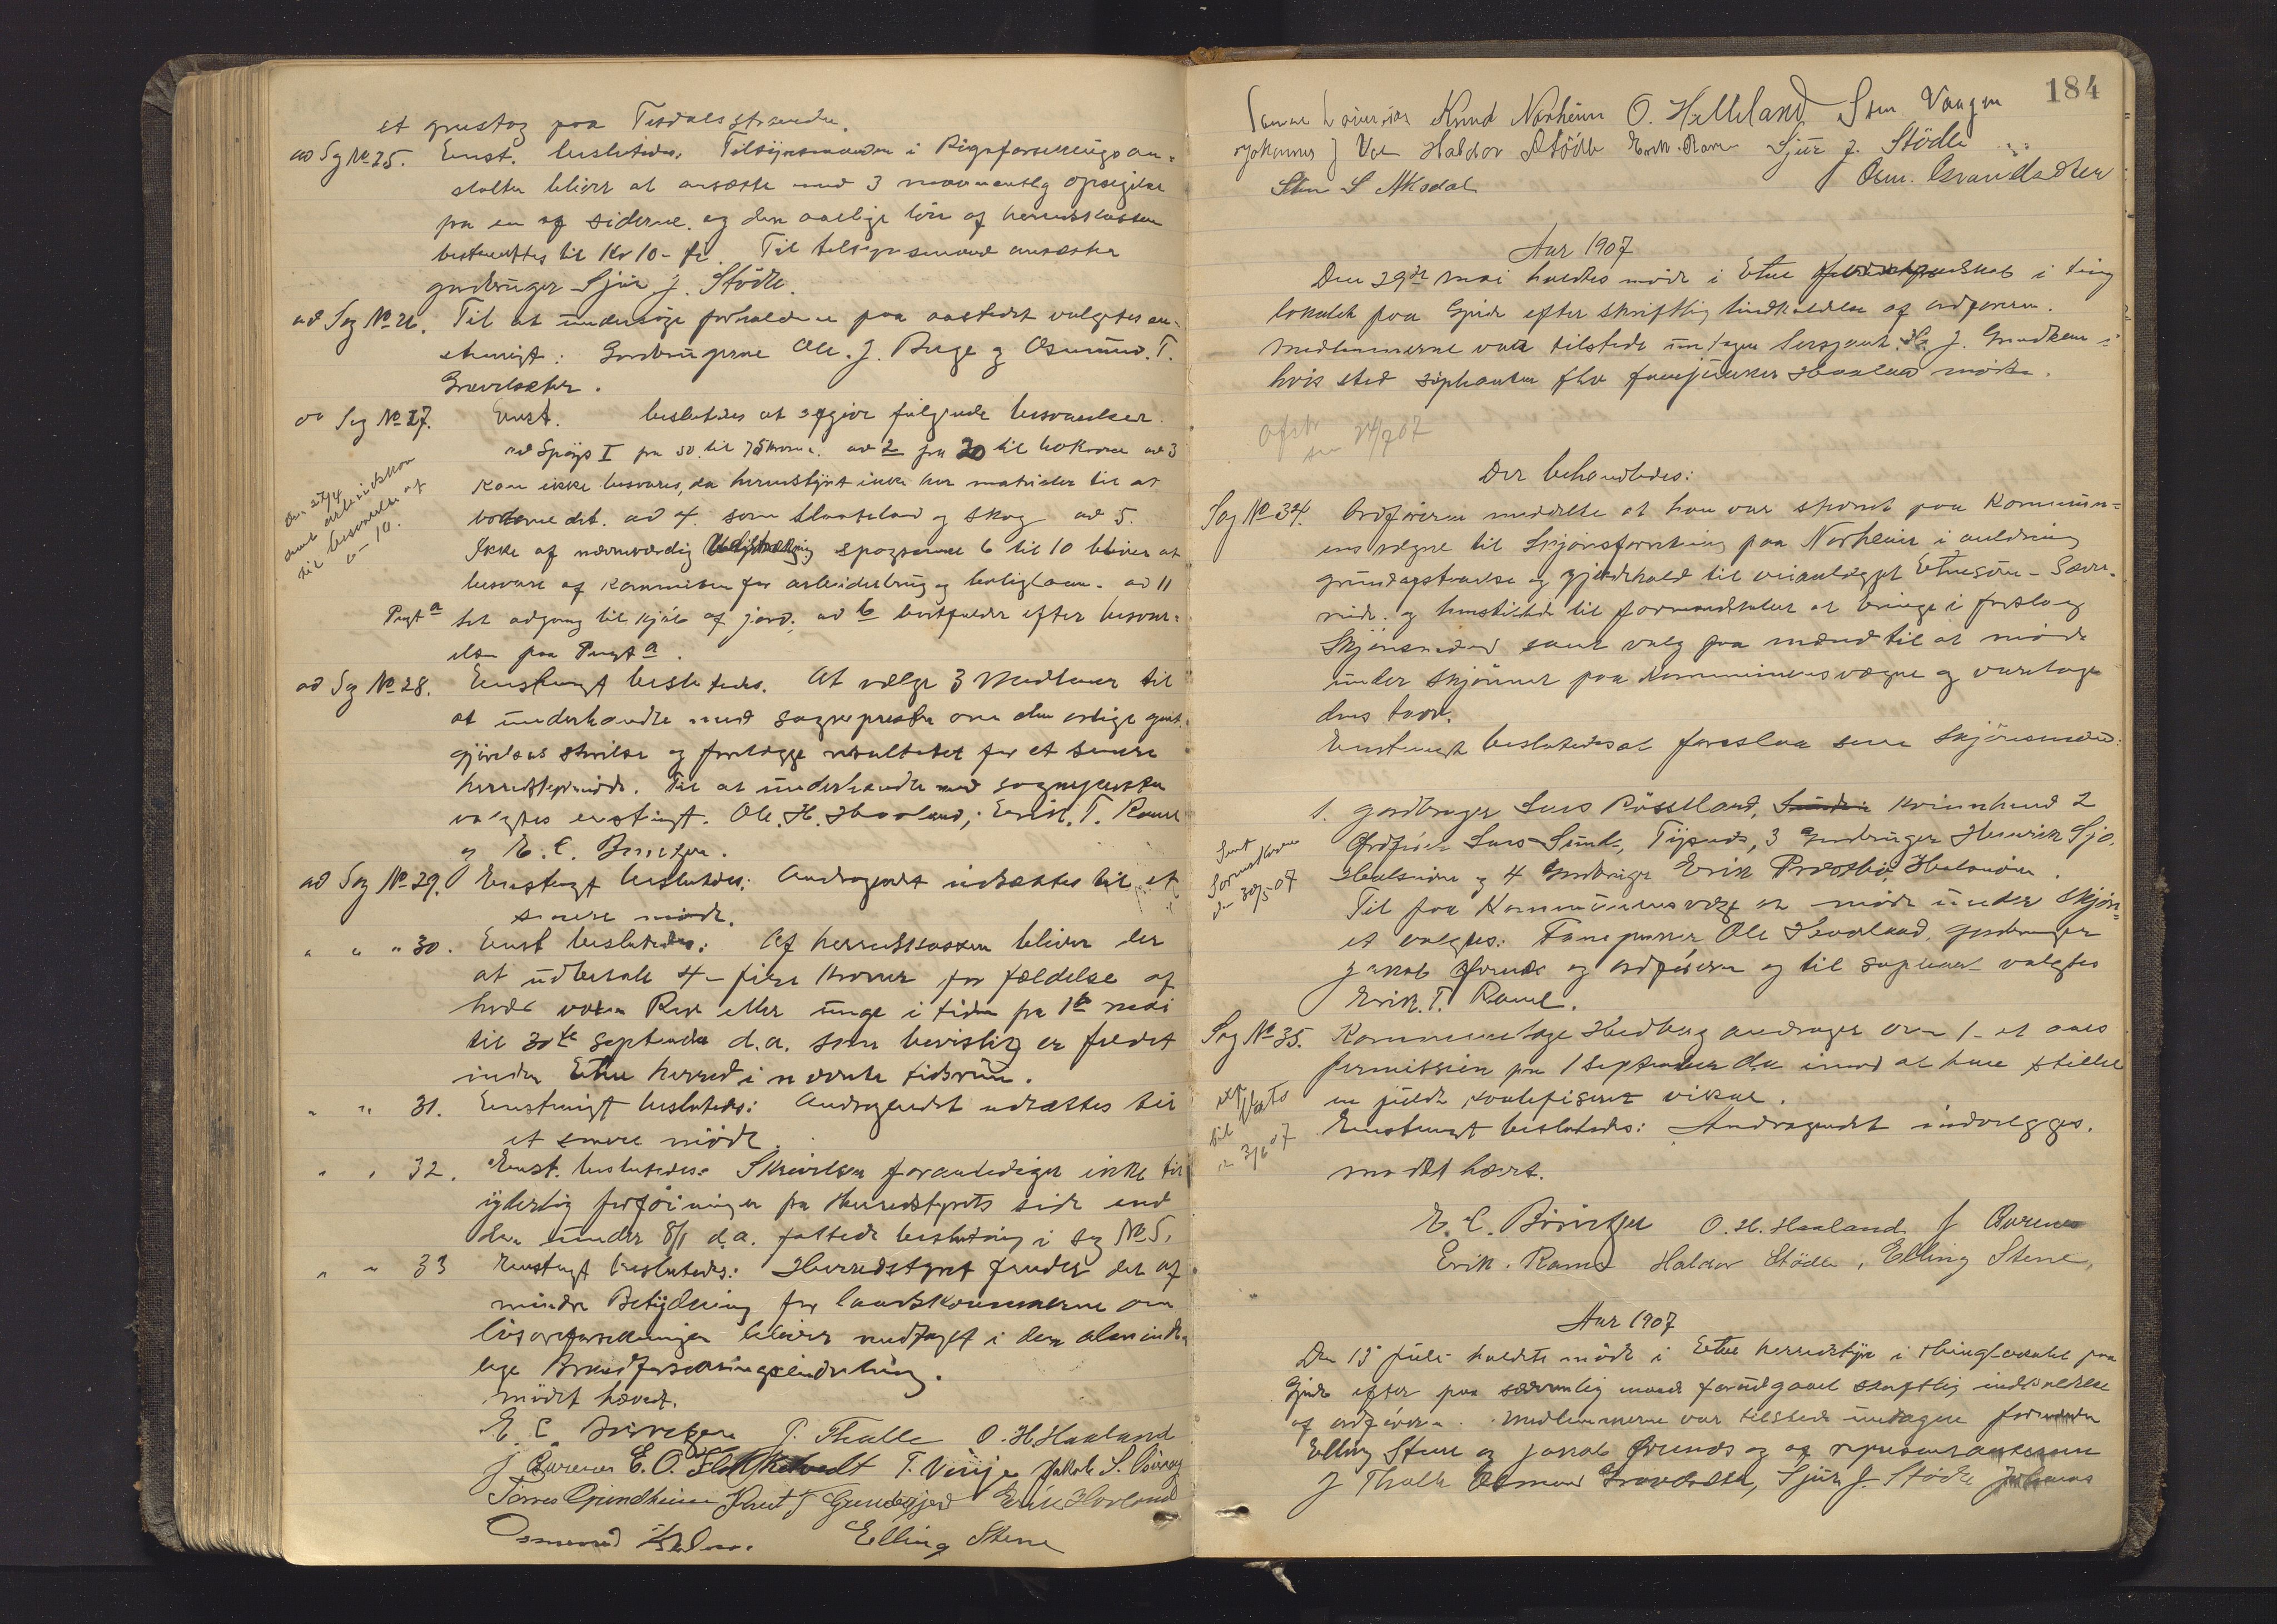 et grustag paa Tesdalsstranden.
ad Sag No 25. Enst. besluttedes: Tilsynsmanden i Rigsforsikringsan-
stalten bliver at ansætte med 3 maaneders opsigelse
fra en af siderne og den aarlige løn af herredskassen
bestemttes til Kr 10- ti. Til tilsynsmand ansattes
gardbruger Sjur J. Stödle.
ad Sag No 26. Til at undersøge forholdene paa aastedet valgtes en-
stemigt: Gardbrugerne Ole J. Berge og Osmund T.
Grindheim.
ad Sag No 27. Enst. besluttedes at afgive følgende besvarelser.
ad Spørgs I fra 50 til 75 kroner. ad 2 fra 30 til 60 Kroner ad 3
Kan ikke besvares, da herredstyret ikke har materialer til at
bedømme det. ad 4. som slaatteland og skog ad 5.
Den 27/4
sendt
til besvarelse af
6-10.
Ikke af nævneværdig spørgsmaal 6 til 10 bliver at
besvare af Kommiteen for arbeiderbrug og boliglaan. ad 11
Punkt a let adgang til kjøb af jord; ad b bortfalder efter besvar-
elsen paa Punkt a.
ad Sag No 28. Enstemigt besluttedes. At vælge 3 Medlemer til
at underhandle med sognepresten om den aarlige godt-
gjørelses størrelse og forelægge resultatet for et senere
herredstyremøde. Til at underhandle med sognepresten
valgtes enstemigt. Ole. H. Haaland, Erik. T. Rame
og E. C. Börretzen.
ad Sag No 29. Enstemigt besluttedes: Andragendet udsættes til et
senere møde.
" " " 30. Enst besluttedes: Af herredskassen bliver der
at udbetale 4- fire kroner for fældelse af
hver voksen Rev eller unge i tiden fra 1ste mai
til 30te september d.a. som bevislig er fældet
inden Etne herred i nævnte tidsrum.
" " 31. Enstemigt besluttedes: Andragendet udsættes til
et senere møde.
" " 32. Enst. besluttedes: Skrivelsen foranlediger ikke til
yderlig forføininger fra Herredstyrets side end
den under 8/1 d.a. fattede beslutning i sag No 5.
" " 33 Enstemigt besluttedes: Herredstyret finder det af
mindre Betydning for landskommunerne om
løsøreforsikringen bliver medtaget i den alminde-
lige Brandforsikringsindretning.
mødet hævet.
E. C. Börretzen J. Thalle O. H. Haaland
J Burenes E. O. T. Vinje Jakob S.
Tørres Grindheim Knut J Grindheim Erik Hovland
Osmund Elling Stene
184
Knud Norheim O. Helleland, Sten Vaagen
Johannes J Haldor Stödle Erik Rame Sjur J. Stödle
Sten S Aksdal Osm. Grindheim
Aar 1907
Den 29de mai holdtes møde i Etne formandskab i ting
lokalet paa Gjerde efter skriftlig indkaldelse af ordføreren.
Medlemmerne var tilstede undtagen Sersjant J. Grindheim i
hvis sted suppleanten Haaland mødte.
Der behandledes:
Sag No 34. Ordføreren meddelte at han var stevnt paa Kommun-
ens vegne til Skjønsforretning paa Norheim i anledning
grundafstaaelse og gjerdehold til veianlægget Etnesjøen - Sævre-
eide og henstillede til formandskabet at bringe i forslag
Skjønsmænd samt valg paa mænd til at møde
under skjønnet paa Kommunens vegne og varetage
dens tarv.
Enstemigt besluttedes at foreslaa som Skjønsmænd:
1. gardbruger Lars Røssland, Kvinnherad 2
Ordfører Lars Sunde, Tysnes, 3 Gardbruger Henrik Sjo,
Halsnøen og 4 Gardbruger Erik Præstbø, Halsnøen.
Sendt
Sorenskriveren
den 30/5-07
Til paa Kommunens vegne at møde under skjøn-
et valgtes: Fanejunker Ole Haaland, gardbruger
Jakob og ordføreren og til supleant valgtes
Erik. T. Rame.
Sag No 35. Kommunelæge Hedberg andrager om 1- et aars
permission fra 1 September d.a. imod at have stillet
en fuldt kvalifiseret vikar.
Enstemigt besluttedes: Andragendet indvilgges.
mødet hævet.
E. C. Börretzen O. H. Haaland J Burenes
Erik. Rame Haldor Stödle, Elling Stene,
Aar 1907
Den 15 juli holdtes møde i Etne herredstyre i thinglokalet paa
Gjerde efter paa sædvanlig maade forudgaaet skriftlig indkaldelse
af ordføreren. Medlemmerne var tilstede undtagen formænd
Elling Stene og Jakob og af repræsentanterne
J Thalle Osmund Sjur J. Stödle Johannes